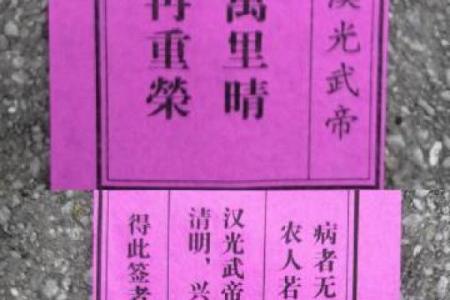 漢光武帝
萬里晴
再重榮
病者无
农人若
汉光武帝
清明，兴
得此签者